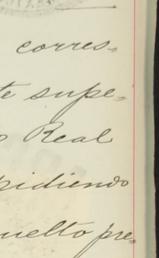 corres-
te supe-
o Real
pidiendo
uelto pre-